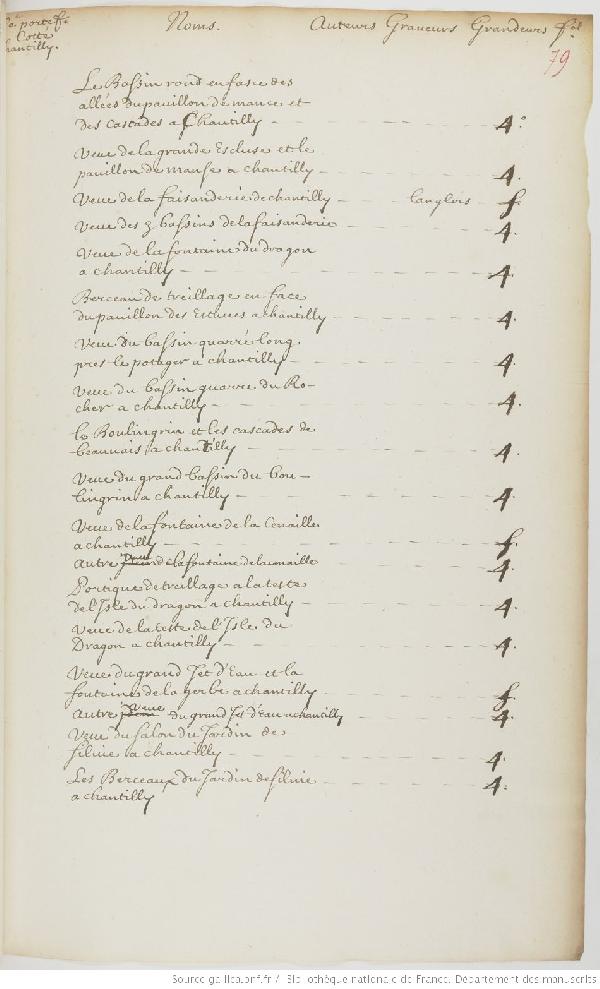 porte f.lle
Cotté
hantilly.
Noms. Auteurs Graveurs Grandeurs f.os
79
Le Bassin rond en face des
allées du pavillon de manse et
des Cascades a Chantilly 4.°
Veue de la grande Escluse et le
pavillon de manse a chantilly 4.
Veue de la faisanderie de chantilly Langlois f.
Veue des 3 bassins de la faisanderie 4.
Veue de la fontaine du dragon
a chantilly 4.
Berceau de treillage en face
du pavillon des Etuves a chantilly 4.
Veue du bassin quarré long
pres le potager a chantilly 4.
Veue du bassin quarré du Ro-
cher a chantilly 4.
le Boulingrin et les cascades de
beauvais a chantilly 4.
Veue du grand bassin du bou-
lingrin a chantilly 4.
Veue de la fontaine de la Tenaille
a chantilly f.
autre veue de la fontaine de la tenaille 4.
Portique de treillage a la teste
de l'Isle du dragon a chantilly 4.
Veue de la teste de l'Isle du
Dragon a chantilly 4.
Veue du grand Jet d'Eau et la
fontaine de la gerbe a chantilly f.
autre veue du grand Jet d'Eau a chantilly 4.
Veue du salon du Jardin de
silvie a chantilly 4.
Les Berceaux du Jardin de silvie 4.
a chantilly
Source gallica.bnf.fr / Bibliothèque nationale de France. Département des manuscrits